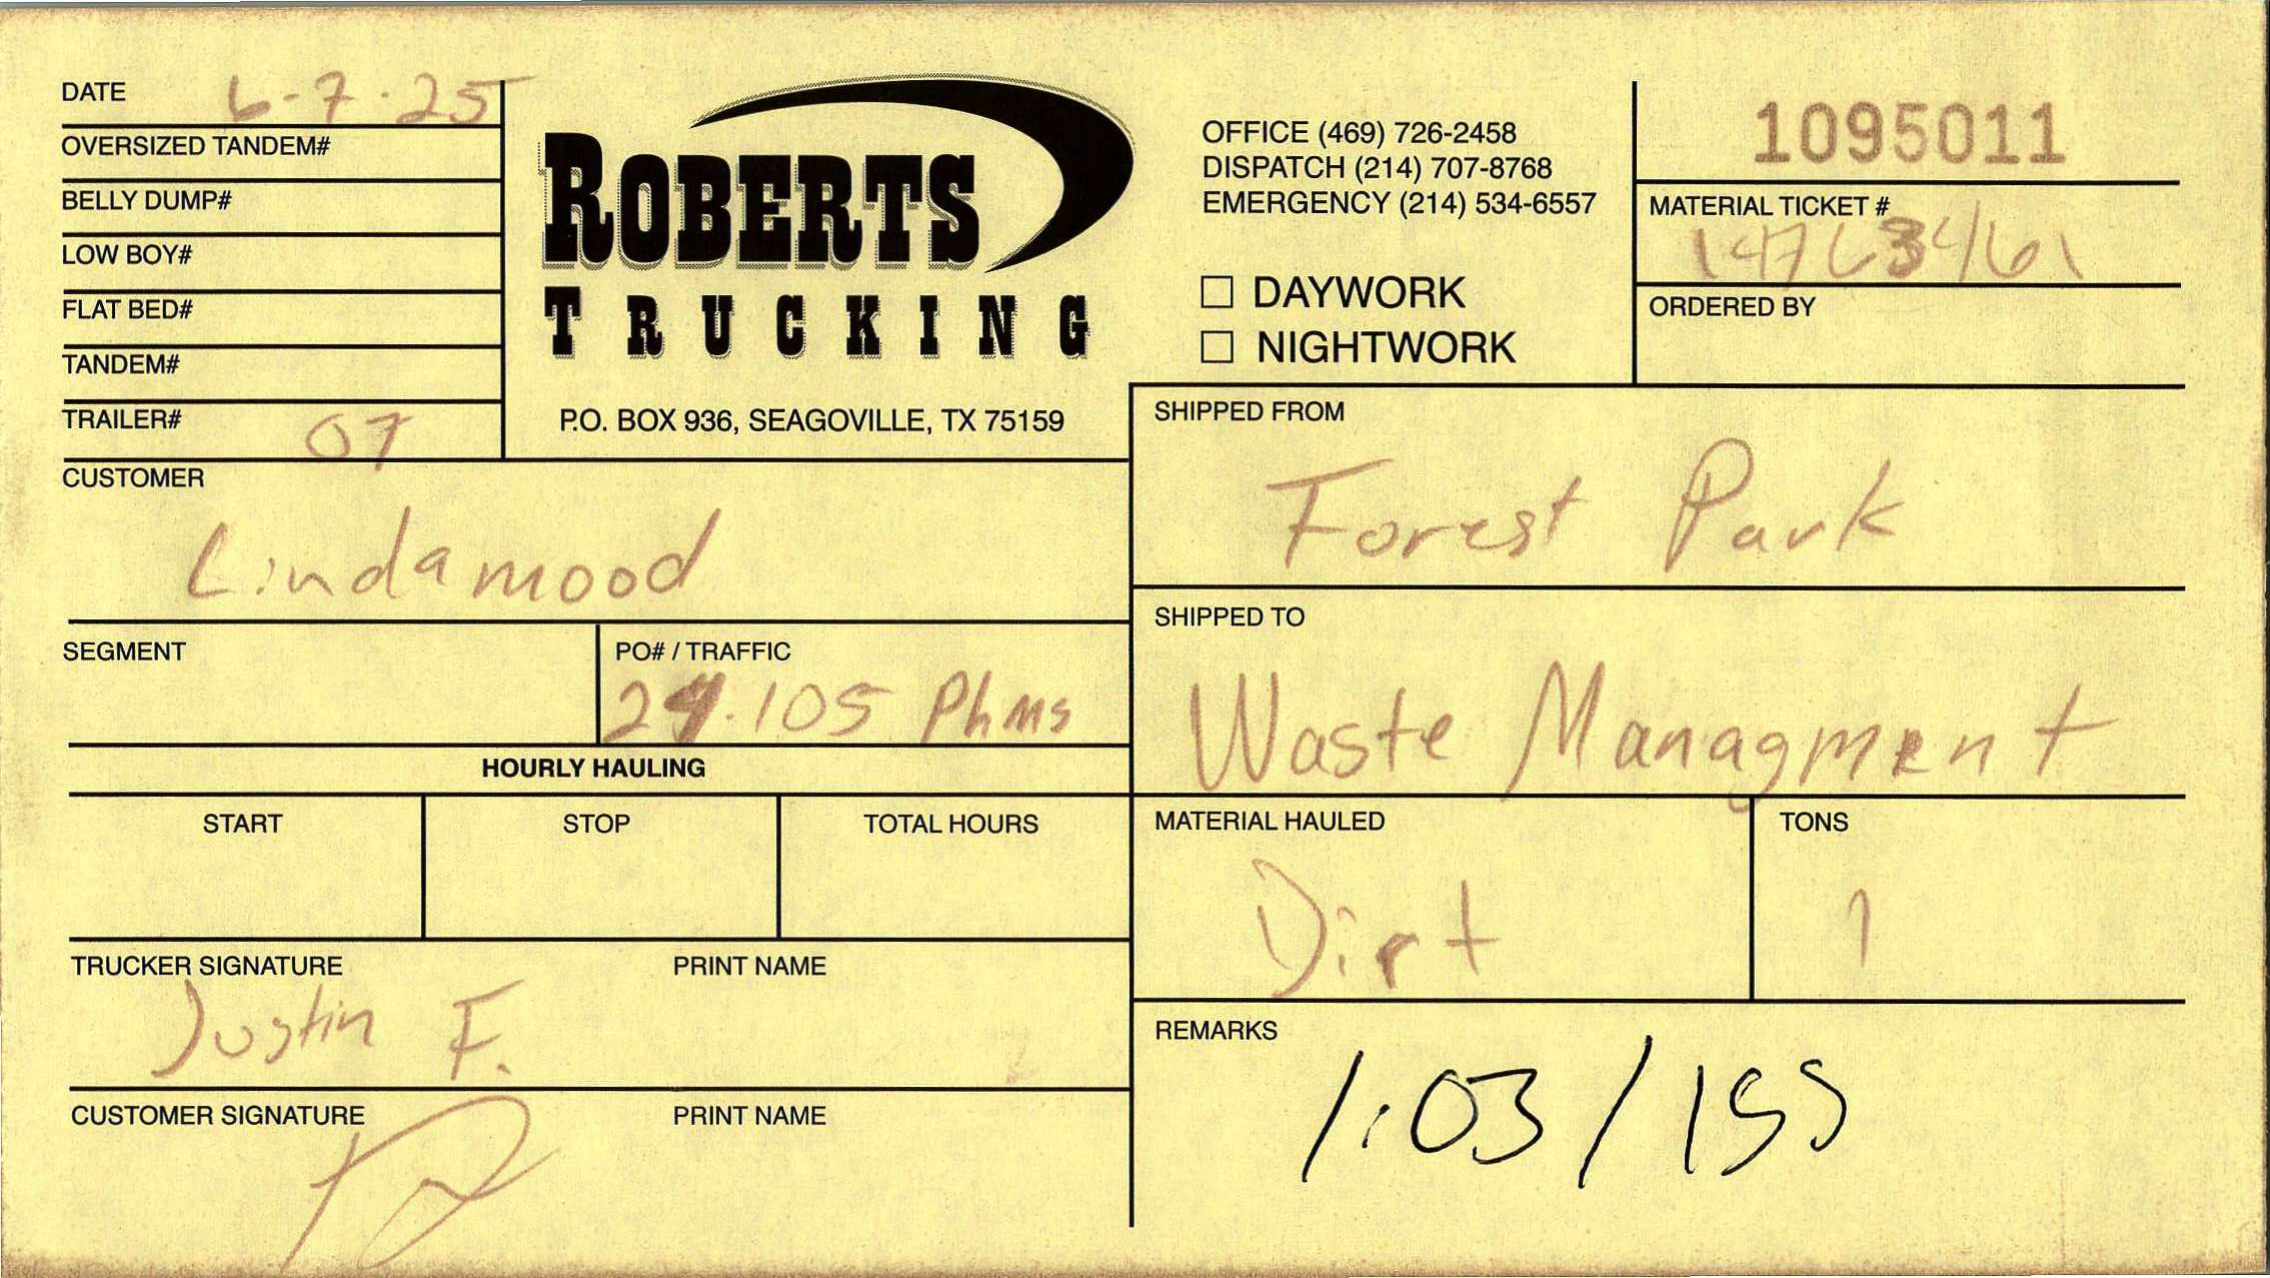 DATE 6-7-25
OVERSIZED TANDEM#
BELLY DUMP#
LOW BOY#
FLAT BED#
TANDEM#
TRAILER# 07
ROBERTS
TRUCKING
P.O. BOX 936, SEAGOVILLE, TX 75159
OFFICE (469) 726-2458
DISPATCH (214) 707-8768
EMERGENCY (214) 534-6557
☐ DAYWORK
☐ NIGHTWORK
1095011
MATERIAL TICKET #
ORDERED BY
CUSTOMER
Lindamood
SHIPPED FROM
Forest Park
SEGMENT
PO# / TRAFFIC
24.105 Phms
SHIPPED TO
Waste Managment
HOURLY HAULING
START STOP TOTAL HOURS
MATERIAL HAULED
Dirt
TONS
1
TRUCKER SIGNATURE PRINT NAME
Justin F.
CUSTOMER SIGNATURE PRINT NAME
REMARKS
1:03/155